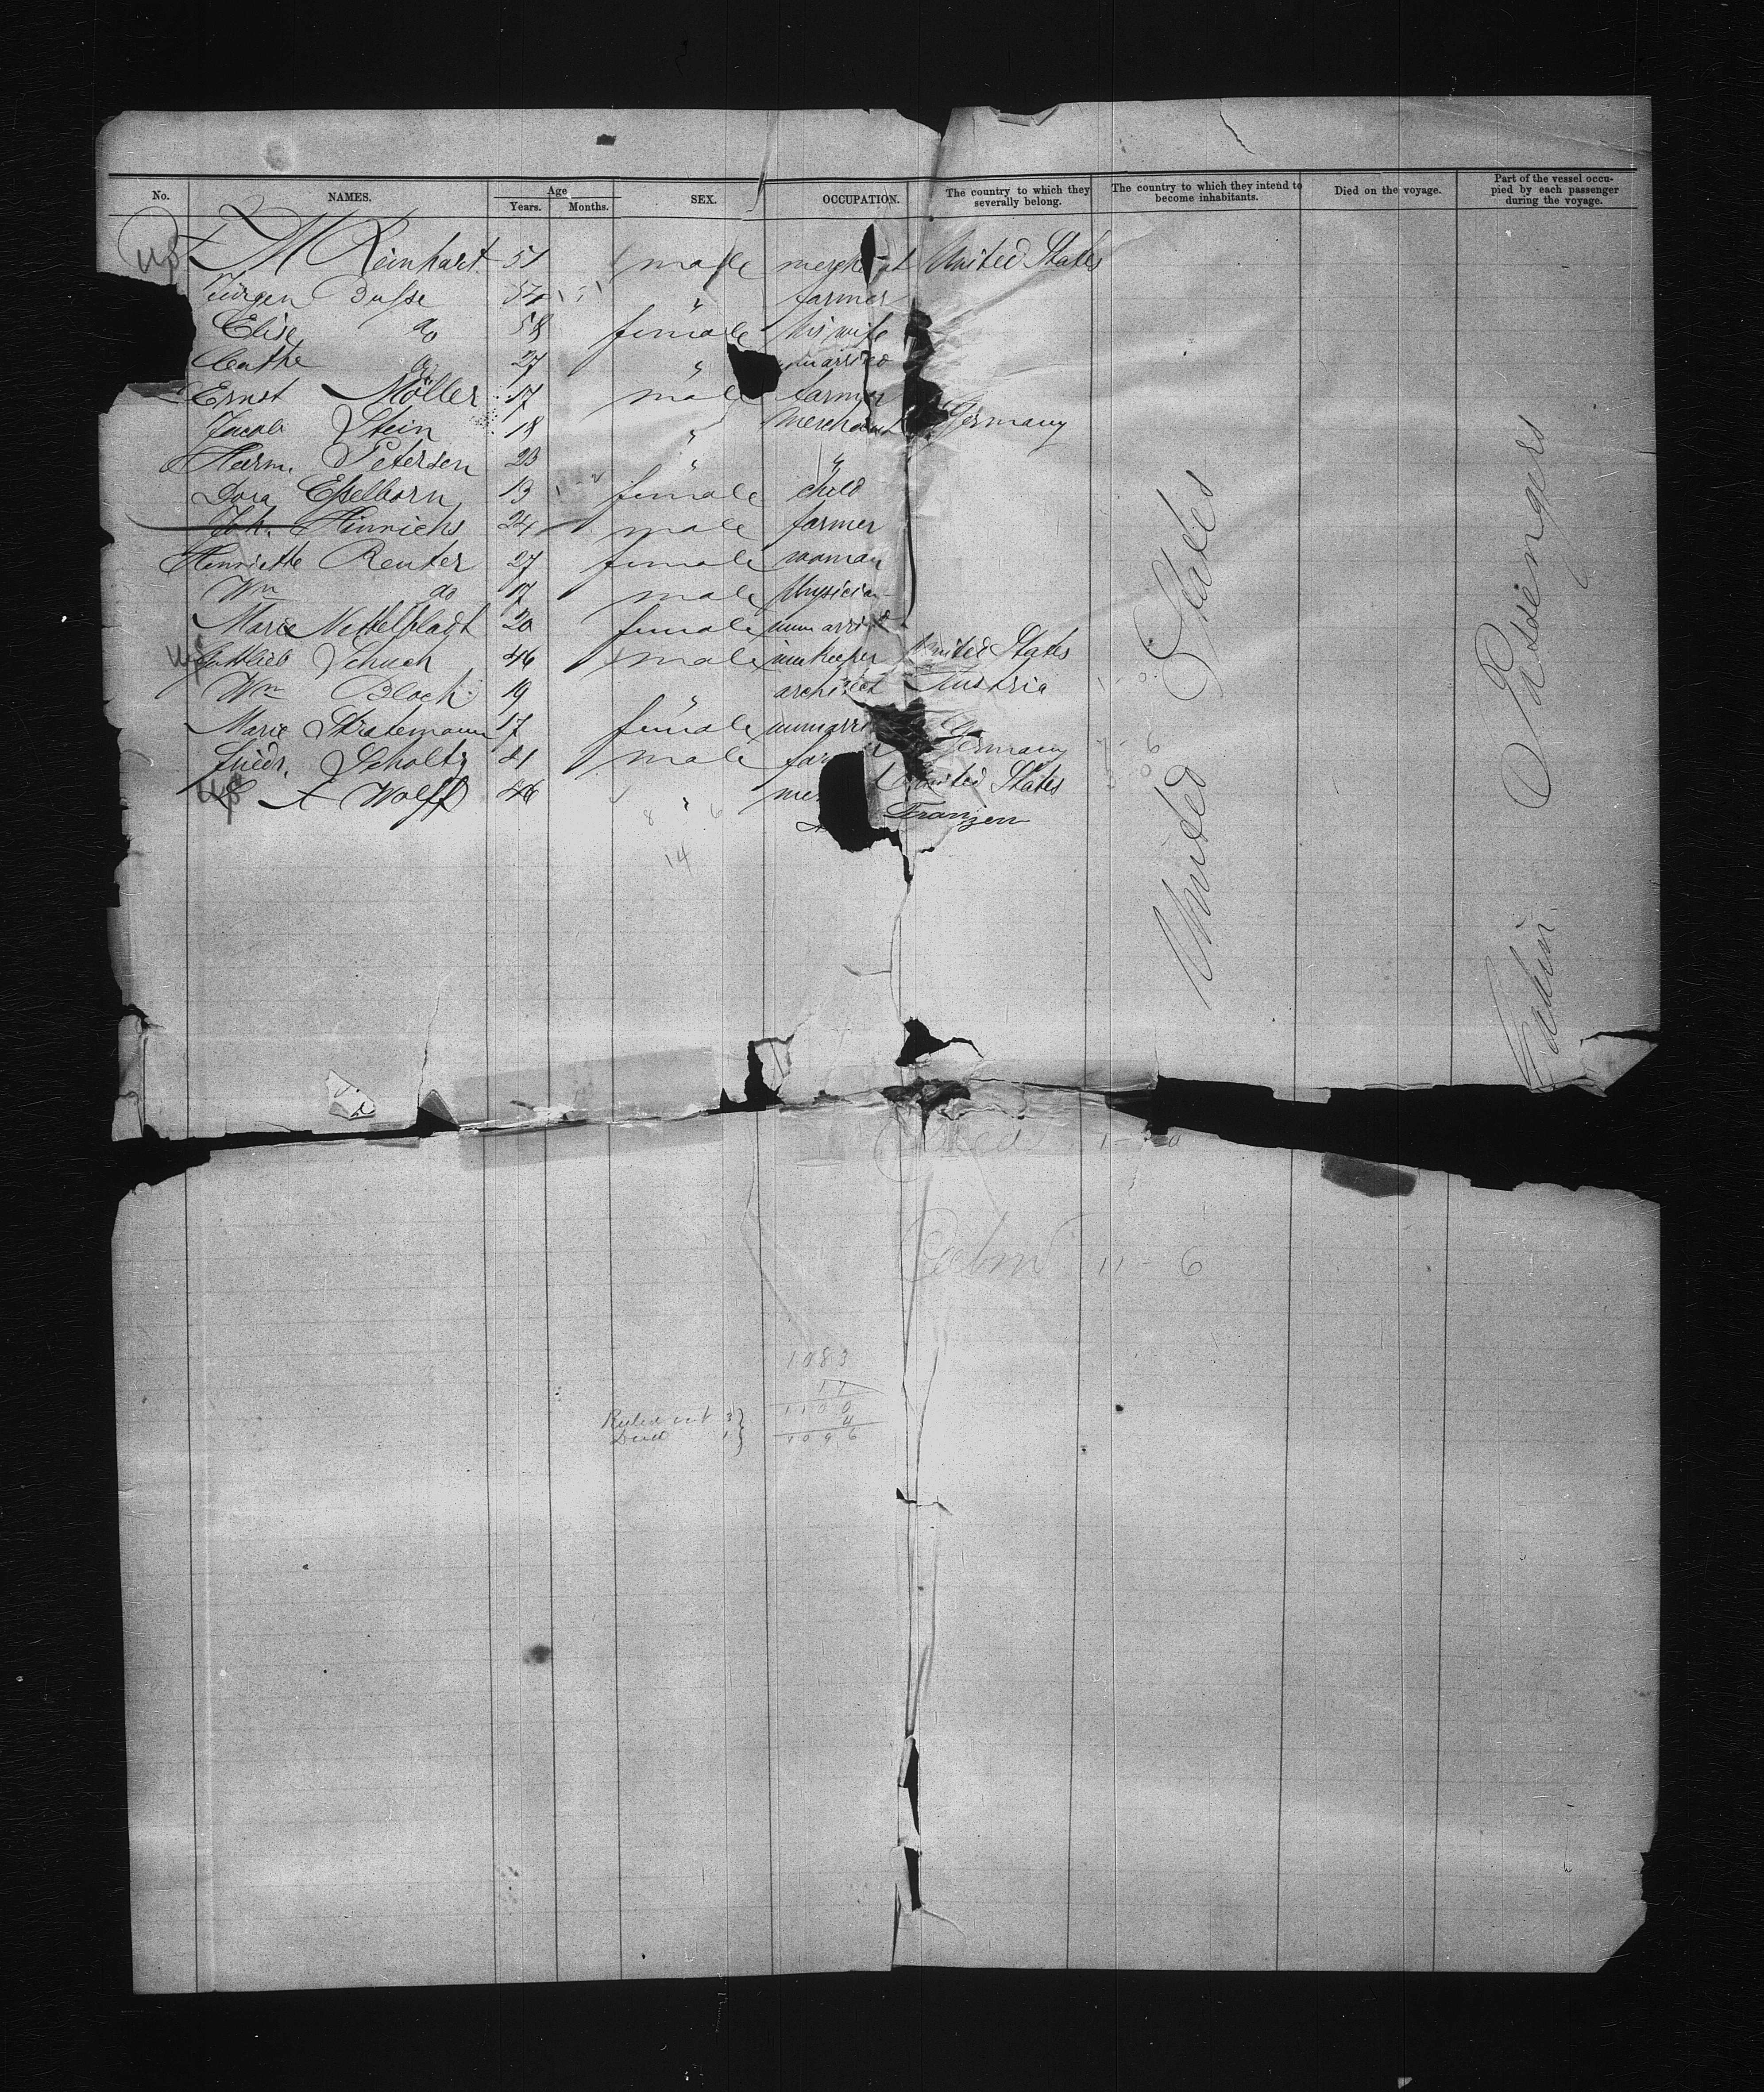 No. NAMES. Age Years. Months. SEX. OCCUPATION. The country to which they severally belong. The country to which they intend to become inhabitants. Died on the voyage. Part of the vessel occupied by each passenger during the voyage.
US M Reinhart 51 male merchant United States
Jürgen Busse 54 " farmer
Elise do 58 female his wife
Cathe do 27 " unmarried
Ernst Möller 17 male farmer
Jacob Stein 18 " merchant Germany
Herm. Petersen 23 " "
Dora Esselborn 13 female child
Joh. Hinrichs 24 male farmer
Henriette Reuter 27 female woman
Wm do 17 male physician
Marie 20 female unmarried
US Gottlieb Schuch 46 male innkeeper United States
Wm Bloch 19 " architect Austria
Marie Stratemann 17 female unmarri Germany
Friedr. Scholtz 21 male far
US A Wolff 46 " mer United States
Franzen
8 6
14
United States
Cabin Passengers
Cabin 11 - 6
1083
17
1100
Ruled out 3 } 4
Died 1 } 1096